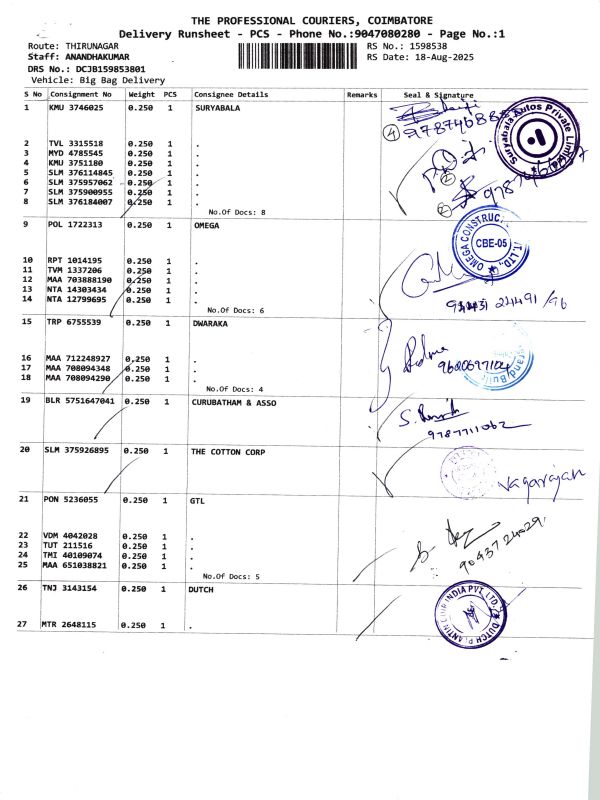 THE PROFESSIONAL COURIERS, COIMBATORE
Delivery Runsheet - PCS - Phone No.:9047080280 - Page No.:1
Route: THIRUNAGAR RS No.: 1598538
Staff: ANANDHAKUMAR RS Date: 18-Aug-2025
DRS No.: DCJB159853801
Vehicle: Big Bag Delivery
S No Consignment No Weight PCS Consignee Details Remarks Seal & Signature
1 KMU 3746025 0.250 1 SURYABALA
Suryabala Autos Private Limited
2 TVL 3315518 0.250 1 .
3 MYD 4785545 0.250 1 .
4 KMU 3751180 0.250 1 .
5 SLM 376114845 0.250 1 .
6 SLM 375957062 0.250 1 .
7 SLM 375900955 0.250 1 .
8 SLM 376184007 0.250 1 .
No.Of Docs: 8
9 POL 1722313 0.250 1 OMEGA
CBE-05
10 RPT 1014195 0.250 1 .
11 TVM 1337206 0.250 1 .
12 MAA 703888190 0.250 1 .
13 NTA 14303434 0.250 1 .
14 NTA 12799695 0.250 1 .
No.Of Docs: 6
15 TRP 6755539 0.250 1 DWARAKA
16 MAA 712248927 0.250 1 .
17 MAA 708094348 0.250 1 .
18 MAA 708094290 0.250 1 .
No.Of Docs: 4
19 BLR 5751647041 0.250 1 CURUBATHAM & ASSO
9787711062
20 SLM 375926895 0.250 1 THE COTTON CORP
Nagarajan
21 PON 5236055 0.250 1 GTL
22 VDM 4042028 0.250 1 .
23 TUT 211516 0.250 1 .
24 TMI 40109074 0.250 1 .
25 MAA 651038821 0.250 1 .
No.Of Docs: 5
9043724029
26 TNJ 3143154 0.250 1 DUTCH
27 MTR 2648115 0.250 1 .